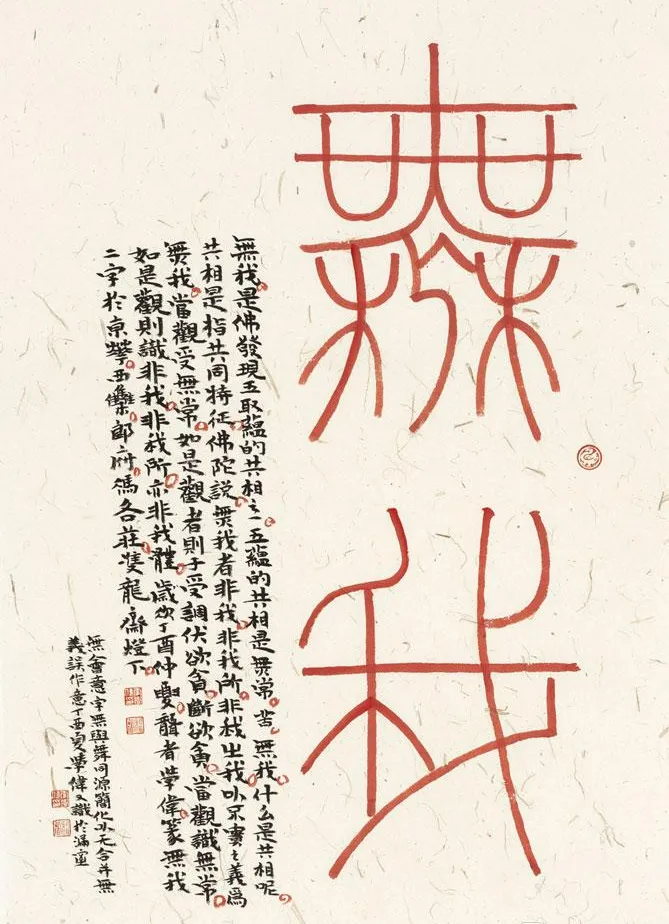 無我
無我是佛發現五取蘊的共相之一五蘊的共相是無常苦無我什么是共相呢
共相是指共同特征佛陀說無我者非我非我所非我出我以不實之義爲
無我當觀受無常如是觀者則于受調伏欲貪斷欲貪當觀識無常
如是觀則識非我非我所亦非我體歲次丁酉仲夏聾者學偉篆無我
二字於京華西雧郎府馮各莊雙龍齋燈下
無會意字無與舞同源簡化以无合并無
義誤作意丁酉夏學偉又識於漏室